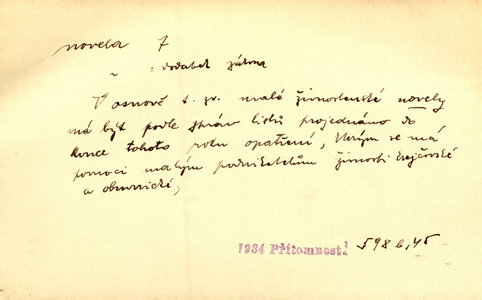 novela 7
~ : dodatek zákona
V osnově t. zv. malé živnostenské novely
má být podle zpráv listů projednáno do
konce tohoto roku opatření, kterým se má
pomoci malým podnikatelům živnosti krejčovské
a obuvnické,
1934 Přítomnost 598 b, 45